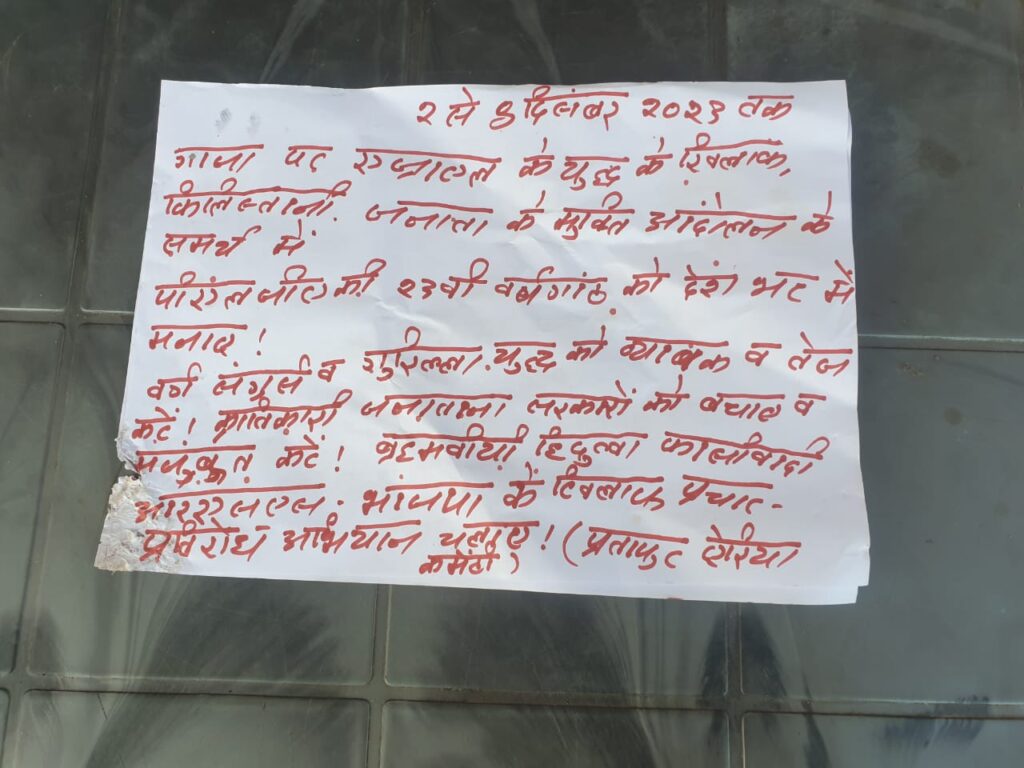 २ से 8 दिसंबर २०२३ तक
गाजा पर इजाएल के युद्ध के खिलाफ,
फिलिस्तानी जनाता के मुक्ति आंदोलन के
समर्थ में
पीएलजीए की २३वी वर्षगांठ को देश भर में
मनाए !
वर्ग संघर्ष व गुरिल्ला युद्ध को व्यापक व तेज
करें ! क्रांतिकारी जनाताना सरकारों को बचाए व
मजबूत करें ! ब्रहमवीयी हिंदुत्वा फासीवादी
आरएसएस - भाजपा के खिलाफ प्रचार-
प्रतिरोध अभियान चलाए ! (प्रतापुर ऐरिया
कमेटी)